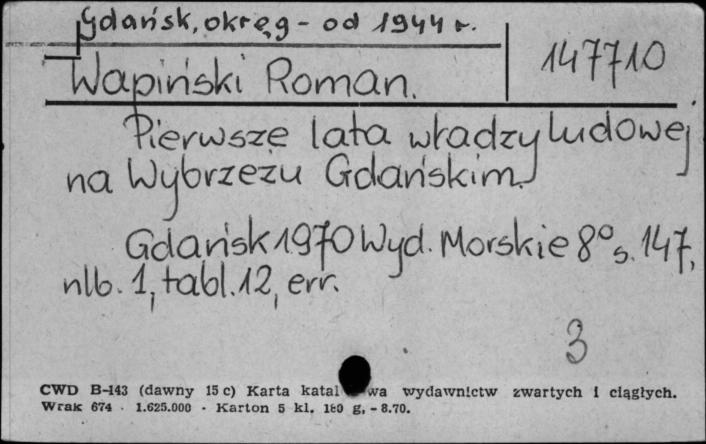 Gdańsk, okręg - od 1944 r.
147710
Wapiński Roman.
Pierwsze lata władzy ludowej
na Wybrzeżu Gdańskim.
Gdańsk 1970 Wyd. Morskie 8° s. 147,
nlb. 1, tabl. 12, err.
3
CWD B-143 (dawny 15 c) Karta katal wa wydawnictw zwartych i ciągłych.
Wrak 674 · 1.625.000 · Karton 5 kl. 180 g. - 8.70.